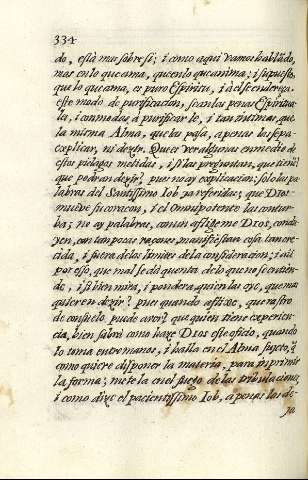 334
do, està mas sobre si; i como aqui vamos hablãdo,
mas en lo que ama, que en lo que anima; i supuesto,
que lo que ama, es puro Espiritu, i à èl se endereça
este modo de purificacion, sean las penas Espiritua
les, i acomodadas à purificarle, i tan intimas, que
la misma Alma, que las passa, apenas las sepa
explicar, ni dezir. Quees ver algunas en medio de
estos pielagos metidas, i si las preguntan, que tienẽ?
que podran dezir? pues no ay explicacion: solo las pa
labras del Santissimo Iob, ya referidas; que Dios
mueve su coraçon, i el Omnipotente las contur-
ba; no ay palabras, con un aflige me Dios,
yen, con tan pocas razones manifiestan cosa tan cre-
cida, i fuera de los limites de la consideracion; i assi
por esso, que mal se dà quenta de lo que no se entien-
de, i si bien mira, i pondera quien las oye, que mas
quieren dezir? pues quando aflixe, que rastro
de consuelo puede aver? que quien tiene experien-
cia, bien sabrà como haze Dios este oficio, quando
lo toma entre manos, i halla en el Alma sugeto, q̃
como quiere disponer la materia, para imprimir
la forma; mete la en el fuego de las tribulaciones,
i como dixo el pacientissimo Iob, apenas las de-
ja